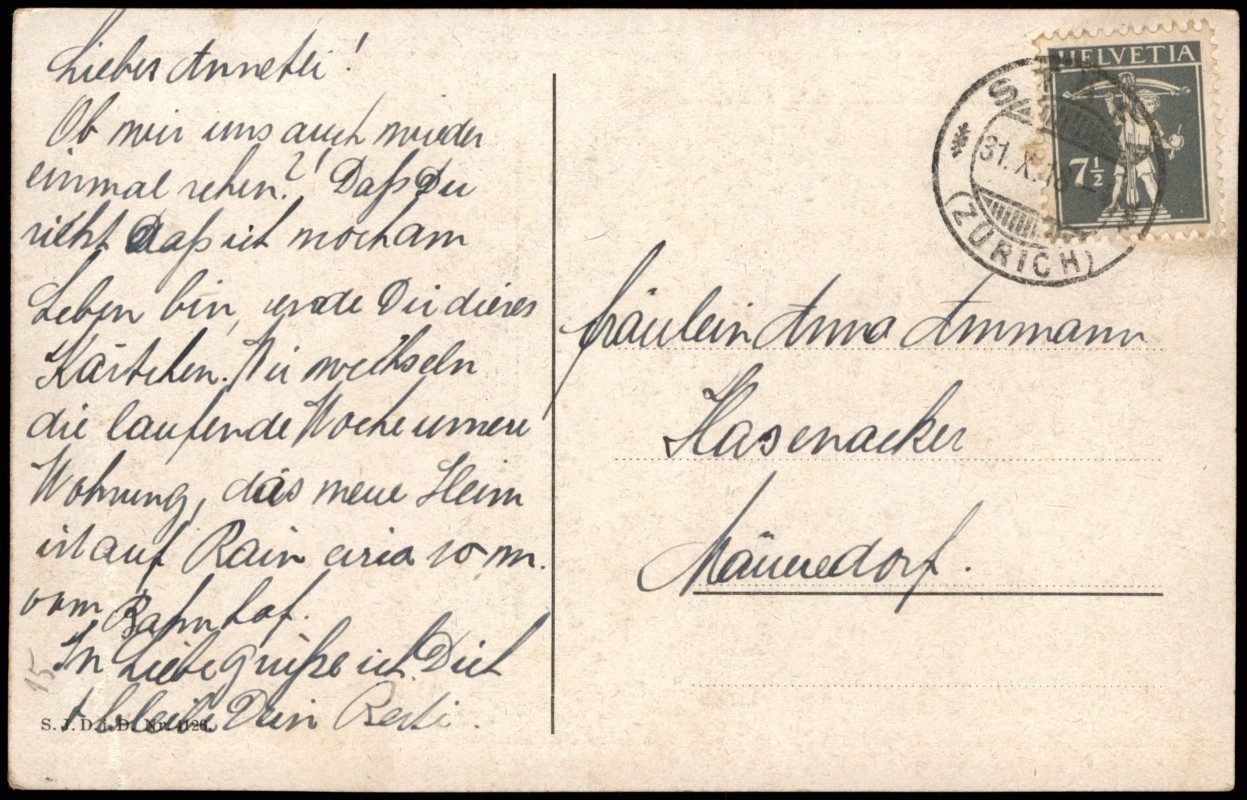 Liebes Annetli!
Ob wir uns auch wieder
einmal sehen?! Daß Du
siehst daß ich noch am
Leben bin, sende Dir dieses
Kärtchen. Wir wechseln
die laufende Woche unsere
Wohnung, das neue Heim
ist auf Rain circa 10 m.
vom Bahnhof.
In Liebe grüße ich Dich
+ bleibe Dein
S. J. D. i. D. Nr. 4126.
15
HELVETIA
7½
31. X. 18
(ZÜRICH)
Fräulein Anna Ammann
Hasenacker
Männedorf.